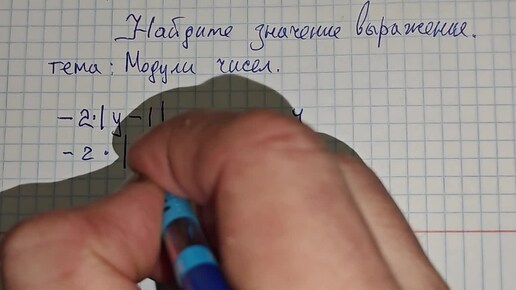 Найдите значение выражение.
тема: Модули чисел.
-2·|y-1|
-2·|